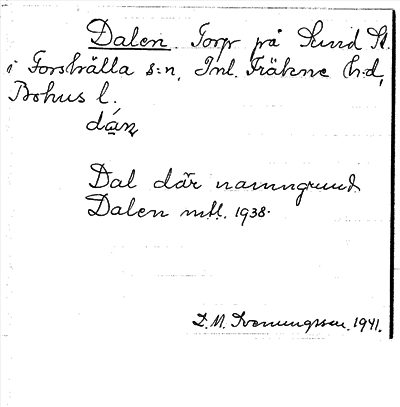 Dalen. Torp på Sund St.
i Forshälla s:n, Inl. Fräkne h:d,
Bohus l.
dán
Dal där namngrund.
Dalen mtl. 1938.
1941.